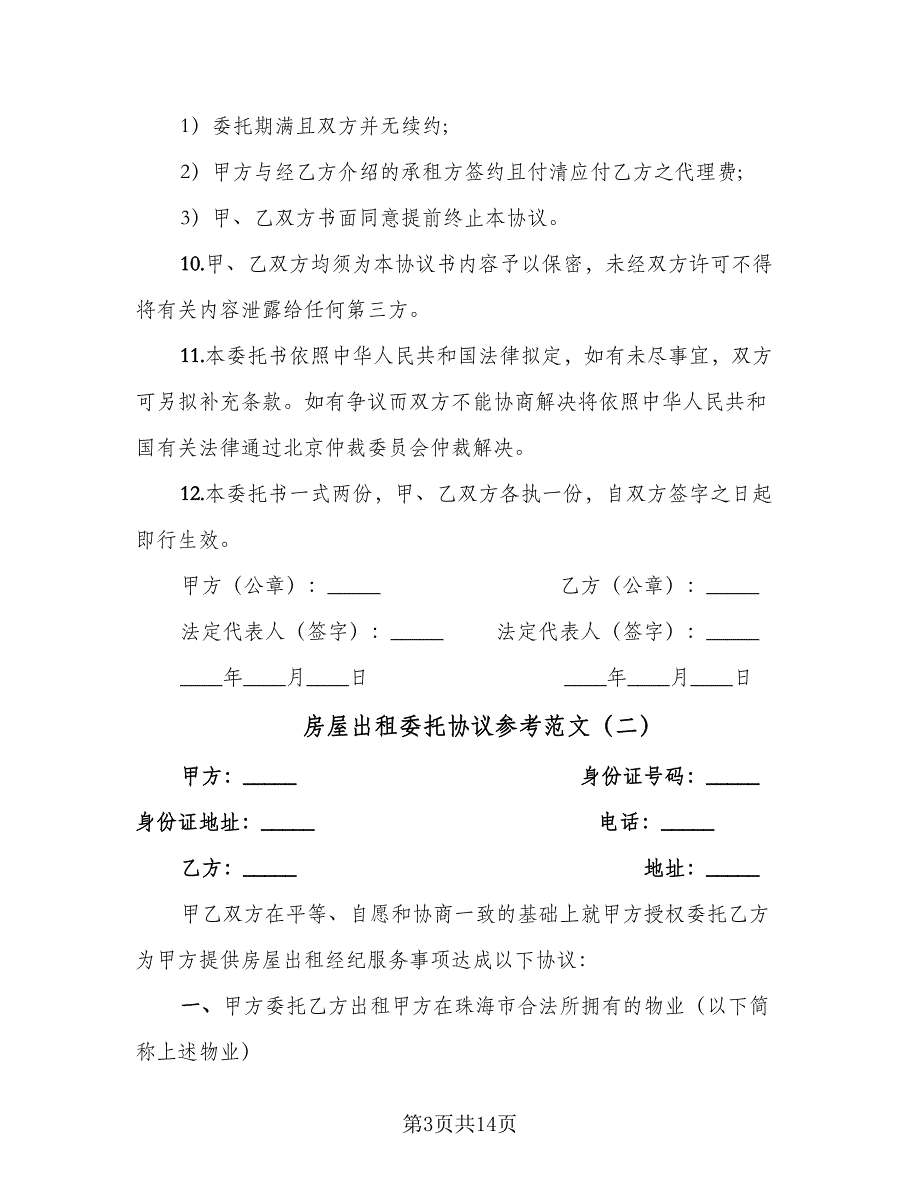 1）委托期满且双方并无续约;
2）甲方与经乙方介绍的承租方签约且付清应付乙方之代理费;
3）甲、乙双方书面同意提前终止本协议。
10.甲、乙双方均须为本协议书内容予以保密，未经双方许可不得
将有关内容泄露给任何第三方。
11.本委托书依照中华人民共和国法律拟定，如有未尽事宜，双方
可另拟补充条款。如有争议而双方不能协商解决将依照中华人民共和
国有关法律通过北京仲裁委员会仲裁解决。
12.本委托书一式两份，甲、乙双方各执一份，自双方签字之日起
即行生效。
甲方（公章）：_____ 乙方（公章）：_____
法定代表人（签字）：_____ 法定代表人（签字）：_____
____年____月____日 ____年____月____日
房屋出租委托协议参考范文（二）
甲方：_____ 身份证号码：_____
身份证地址：_____ 电话：_____
乙方：_____ 地址：_____
甲乙双方在平等、自愿和协商一致的基础上就甲方授权委托乙方
为甲方提供房屋出租经纪服务事项达成以下协议：
一、甲方委托乙方出租甲方在珠海市合法所拥有的物业（以下简
称上述物业）
第3页共14页